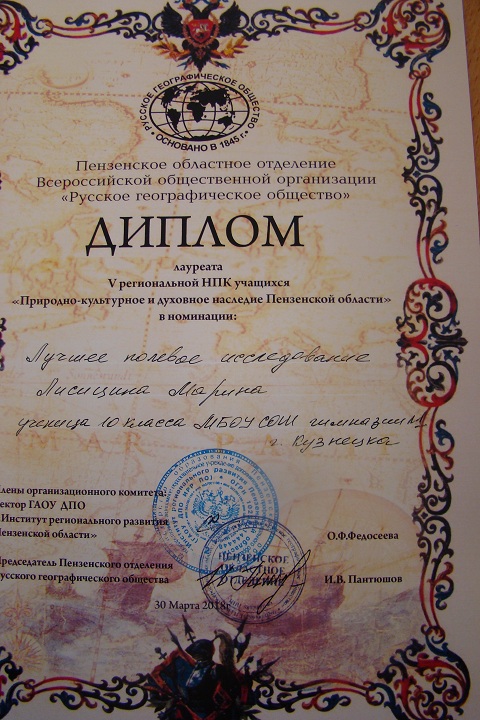 РУССКОЕ ГЕОГРАФИЧЕСКОЕ ОБЩЕСТВО
• ОСНОВАНО В 1845 г. •
Пензенское областное отделение
Всероссийской общественной организации
«Русское географическое общество»
ДИПЛОМ
лауреата
V региональной НПК учащихся
«Природно-культурное и духовное наследие Пензенской области»
в номинации:
Лучшее полевое исследование
Лисицина Марина
ученица 10 класса МБОУ СОШ гимназии
г. Кузнецка
лены организационного комитета:
ектор ГАОУ ДПО
Институт регионального развития
Пензенской области»
О.Ф.Федосеева
Председатель Пензенского отделения
усского географического общества
И.В. Пантюшов
ПЕНЗЕНСКОЕ
ОБЛАСТНОЕ
ОТДЕЛЕНИЕ
30 Марта 2018г